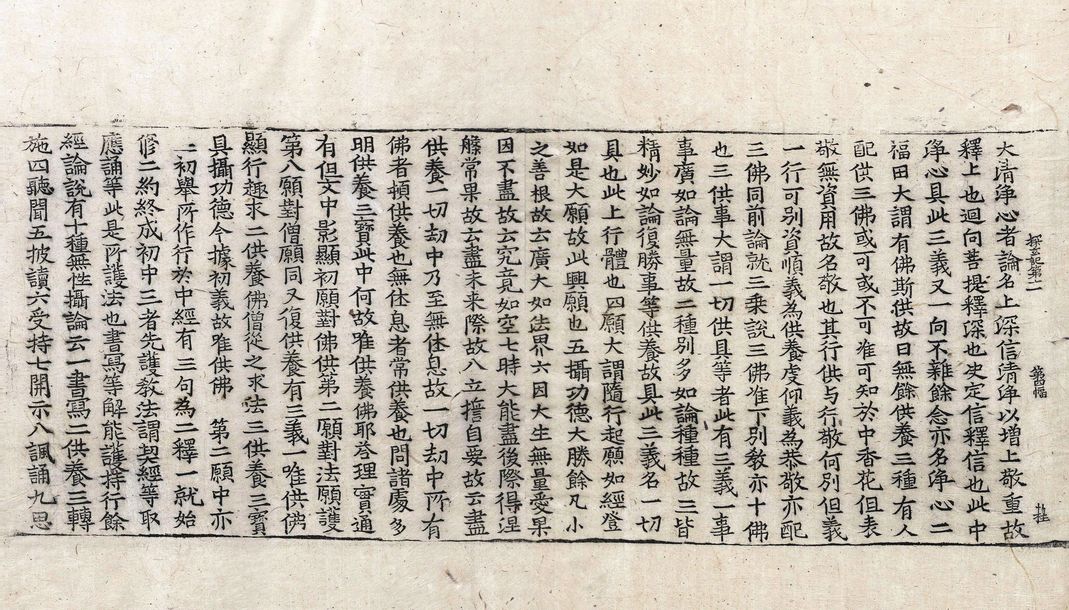 大清淨心者論名上深信清淨以增上敬重故
探玄記第十一
第四幅
釋上也迴向菩提釋深也決定信釋信也此中
淨心具此三義又一向不雜餘念亦名淨心二
福田大謂有佛斯供故曰無餘供養三種有人
配供三佛或可或不可准可知於中香花但表
敬無資用故名敬也其行供与行敬何別但義
一行可別資順義為供養虔仰義為恭敬亦配
三佛同前論就三乘說三佛准下別教亦十佛
也三供事大謂一切供具等者此有三義一事
事廣如論無量故二種別多如論種種故三皆
精妙如論復勝事等供養故具此三義名一切
具也此上行體也四願大謂隨行起願如經發
如是大願故此興願也五攝功德大勝餘凡小
之善根故云廣大如法界六因大生無量愛果
因不盡故云究竟如空七時大能盡後際得涅
槃常果故云盡未来際故八立誓自要故云盡
供養一切劫中乃至無休息故一切劫中所有
佛者頓供養也無休息者常供養也問諸處多
明供養三寶此中何故唯供養佛耶答理實通
有但文中影顯初願對佛供第二願對法願護
第八願對僧願同又復供養有三義一唯供佛
顯行趣求二供養佛僧從之求法三供養三寶
具攝功德今據初義故唯供佛　第二願中亦
二初舉所作行於中經有三句為二釋一就始
修二約終成初中三者先護教法謂契經等取
應誦等此是所護法也書寫等解能護持行餘
經論說有十種無性攝論云一書寫二供養三轉
施四聽聞五披讀六受持七開示八諷誦九思